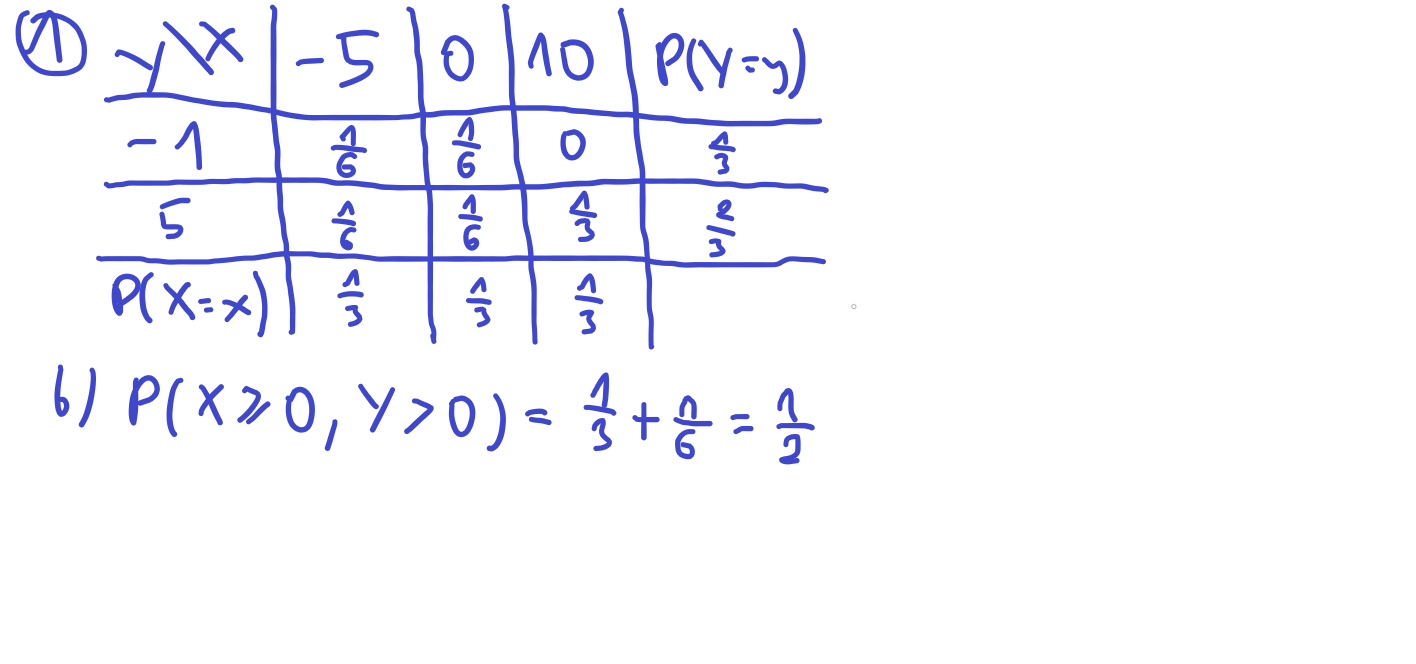 ① y\x | -5 | 0 | 10 | P(Y=y)
-1 | 1/6 | 1/6 | 0 | 1/3
5 | 1/6 | 1/6 | 1/3 | 2/3
P(X=x) | 1/3 | 1/3 | 1/3 |
b) P(X ≥ 0, Y > 0) = 1/3 + 1/6 = 1/2